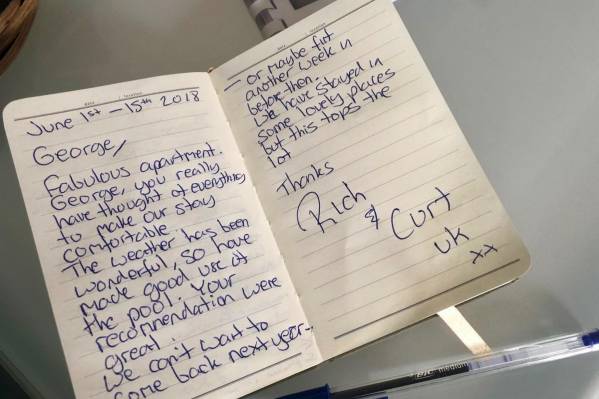 June 1st - 15th 2018
George,
Fabulous apartment.
George, you really
have thought of everything
to make our stay
comfortable.
The weather has been
wonderful, so have
made good use of
the pool. Your
recommendation were
great.
We can't wait to
come back next year -
- or maybe fit
another week in
before then.
We have stayed in
some lovely places
but this tops the
lot
Thanks
Rich
& Curt
UK
xx
medium